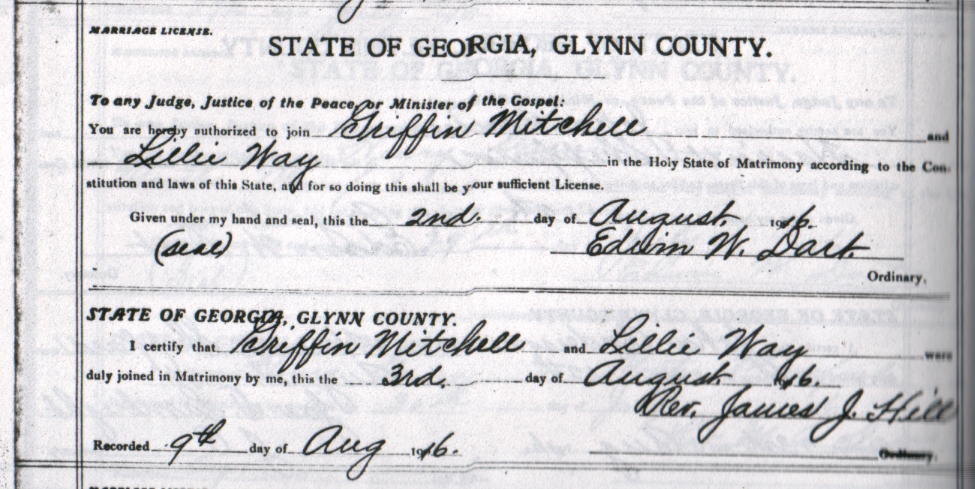 MARRIAGE LICENSE.
STATE OF GEORGIA, GLYNN COUNTY.
To any Judge, Justice of the Peace, or Minister of the Gospel:
You are hereby authorized to join Griffin Mitchell and
Lillie Way in the Holy State of Matrimony according to the Con-
stitution and laws of this State, and for so doing this shall be your sufficient License.
Given under my hand and seal, this the 2nd. day of August, 1916.
(seal) Edwin W. Dart.
Ordinary.
STATE OF GEORGIA, GLYNN COUNTY.
I certify that Griffin Mitchell and Lillie Way were
duly joined in Matrimony by me, this the 3rd. day of August 1916.
Rev. James J. Hill
Recorded 9th day of Aug 1916. Ordinary.